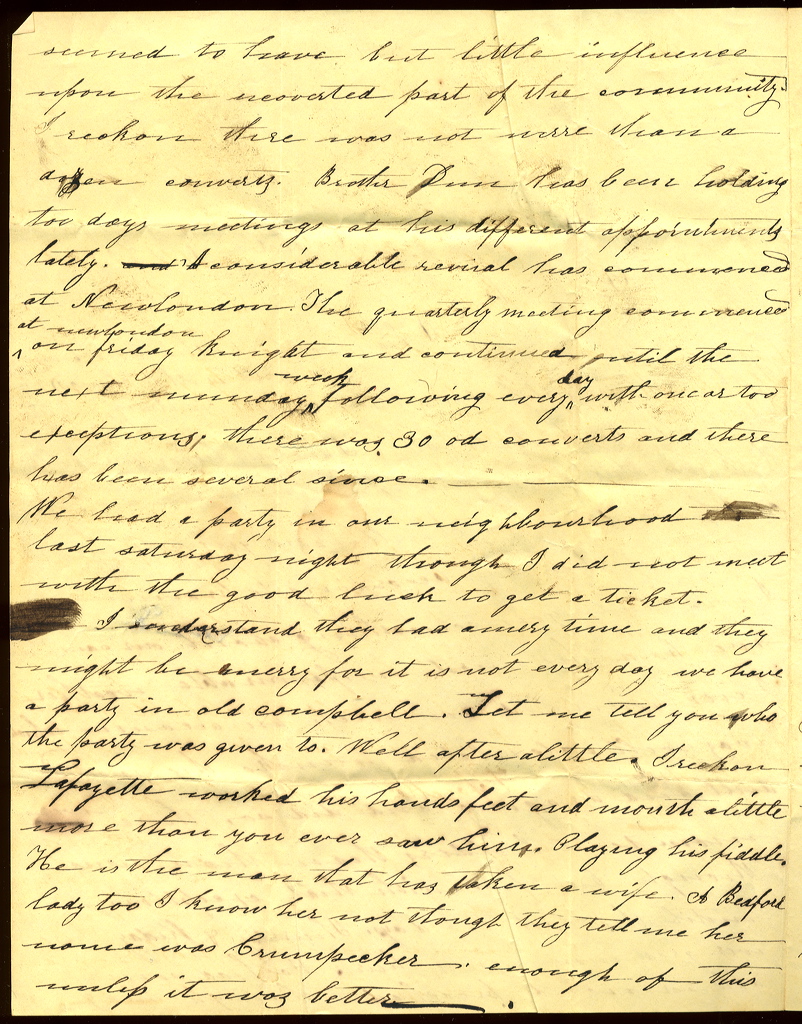 seemed to have but little influence
upon the uncoverted part of the community.
I reckon there was not more than a
dozen converts. Brother Dunn has been holding
too days meetings at his different appointments
lately. and A considerable revival has commenced
at Newlondon. The quarterly meeting commenced
at newlondon
on friday knight and continued until the
next munday week following every day with one or too
exceptions, there was 30 od converts and there
has been several since.
We had a party in our neighbourhood
last saturday night though I did not meet
with the good luck to get a ticket.
I understand they had a mery time and they
might be merry for it is not every day we have
a party in old campbell. Let me tell you who
the party was given to. Well after a little. I reckon
Lafayette worked his hands feet and mouth a little
more than you ever saw him. Playing his fiddle.
He is the man that has taken a wife. A Bedford
lady too I know her not though they tell me her
name was Crumpecker. enough of this
unless it was better